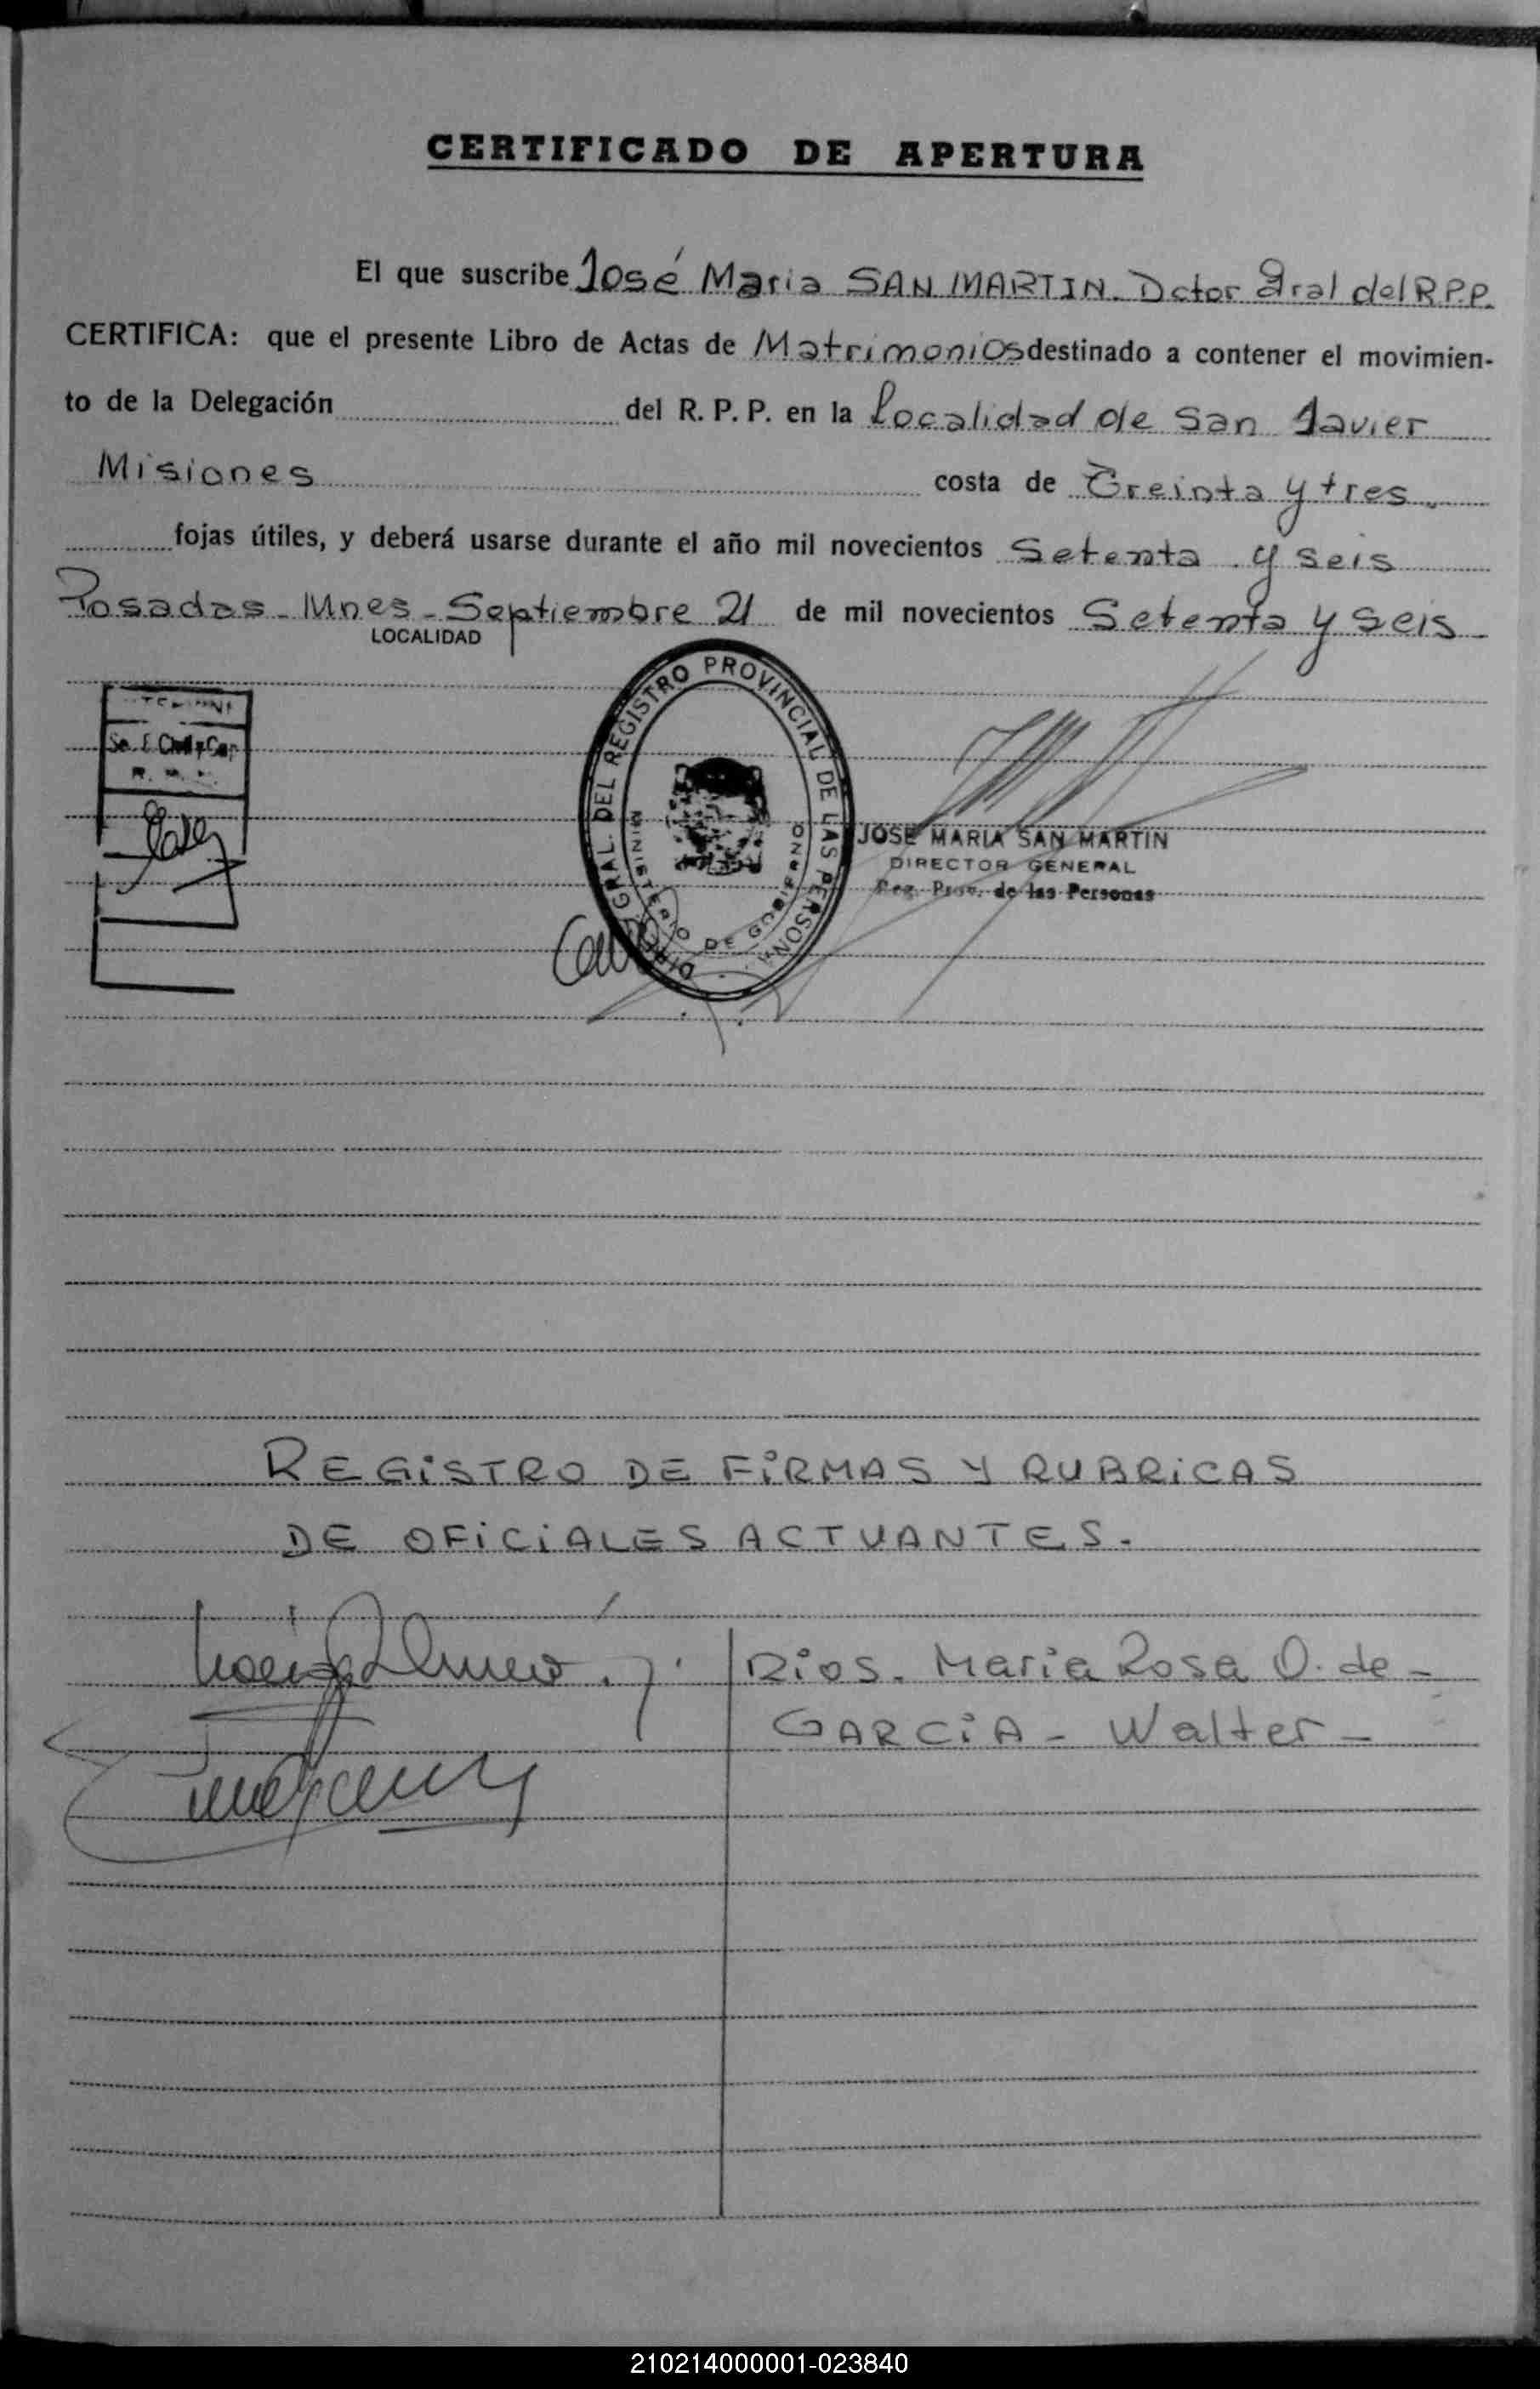 CERTIFICADO DE APERTURA
El que suscribe José Maria SAN MARTIN. Dctor Gral del R.P.P.
CERTIFICA: que el presente Libro de Actas de Matrimonios destinado a contener el movimien-
to de la Delegación del R. P. P. en la Localidad de San Javier
Misiones costa de Treinta y tres.
fojas útiles, y deberá usarse durante el año mil novecientos Setenta y seis
Posadas - Mnes - Septiembre 21 de mil novecientos Setenta y seis
LOCALIDAD
DIREC. GRAL. DEL REGISTRO PROVINCIAL DE LAS PERSONAS
MINISTERIO DE GOBIERNO
JOSE MARIA SAN MARTIN
DIRECTOR GENERAL
Reg. Prov. de las Personas
REGISTRO DE FIRMAS Y RUBRICAS
DE OFICIALES ACTUANTES.
Rios. Maria Rosa O. de -
GARCIA - Walter -
210214000001-023840